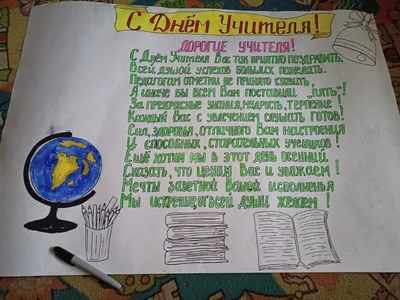 С Днём Учителя!
ДОРОГИЕ УЧИТЕЛЯ!
С Днём Учителя Вас так приятно поздравить,
Всей душой успехов больших пожелать.
Педагогам отметки не принято ставить,
А иначе бы всем Вам поставили „пять"!
За прекрасные знания, мудрость, терпение
Каждый Вас с увлечением слушать готов!
Сил, здоровья, отличного Вам настроения
И способных, старательных учеников!
Ещё хотим мы в этот день осенний
Сказать, что ценим Вас и уважаем!
Мечты заветной Вашей исполненья
Мы искренне, от всей души желаем!